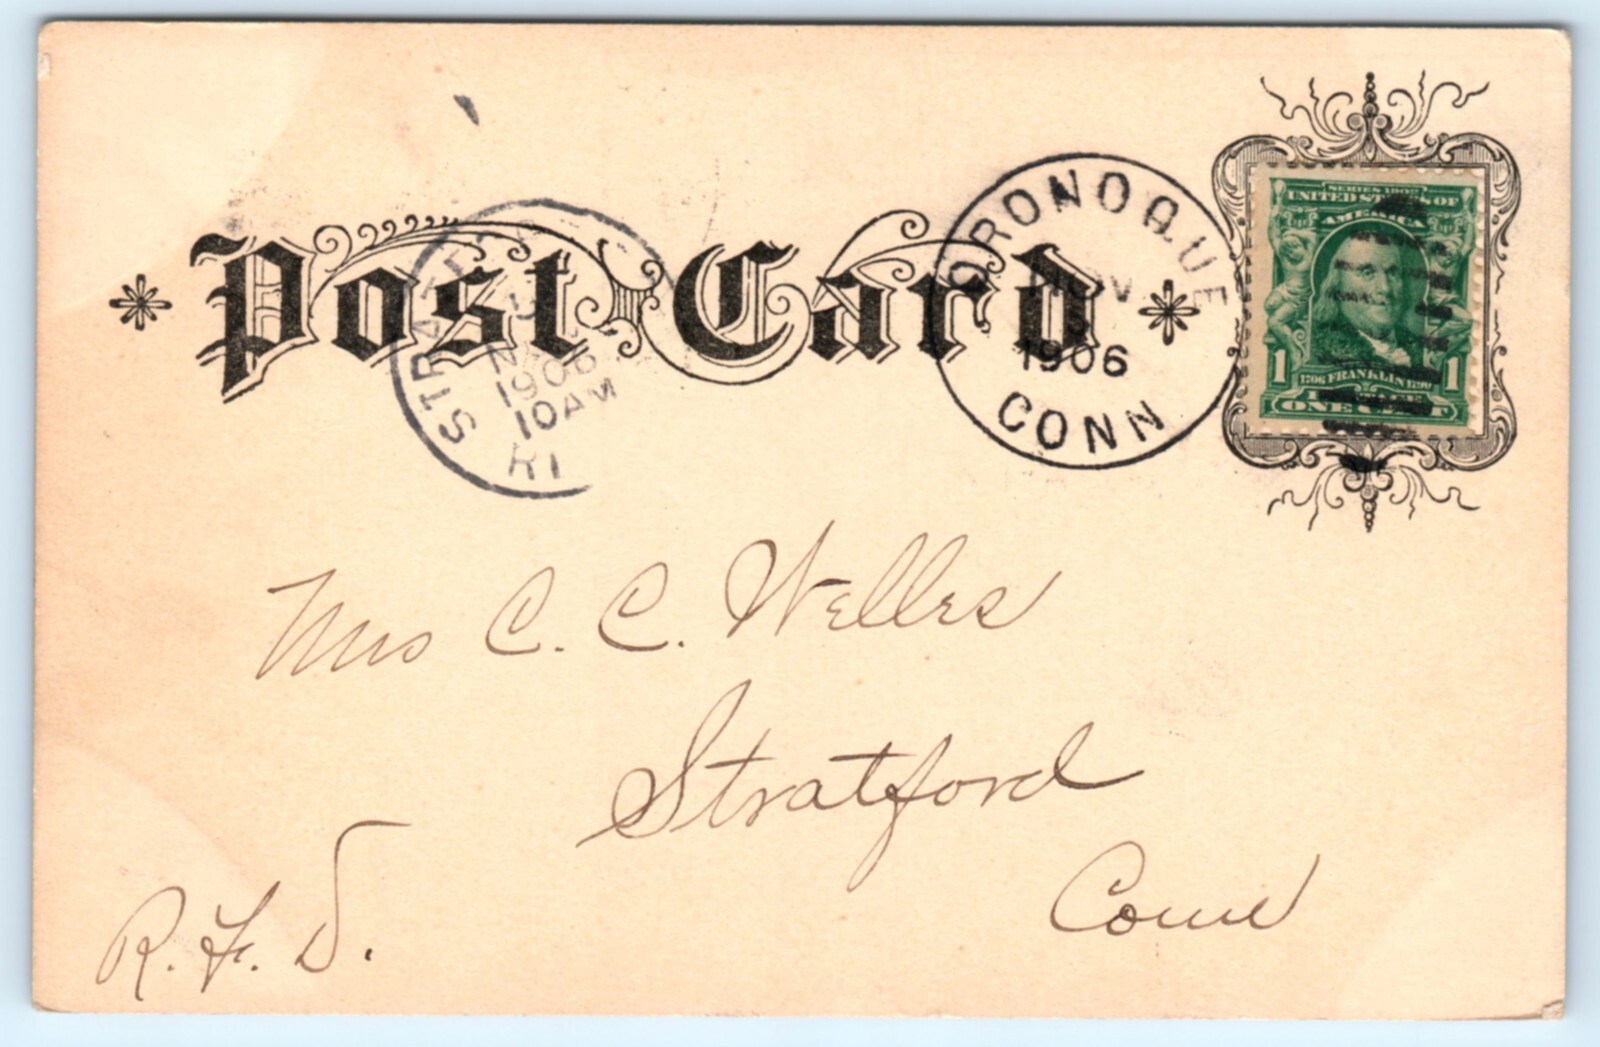 Post Card
ORONOQUE
NOV
1906
CONN
SERIES 1902
UNITED STATES OF
AMERICA
1 1
1706 FRANKLIN 1790
ONE CENT
1906
10 AM
Mrs C. C. Welles
Stratford
Conn
R. F. D.